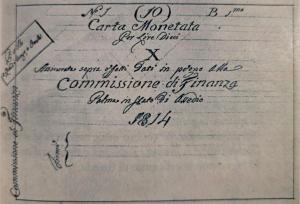 No. 1 (10) B 1mo
Carta Monetata
Per Lire Dieci
X
sopra effetti Dati in pegno alla
Commissione di Finanza
Palma in stato di Assedio
1814
Firme
Commissione di Finanza